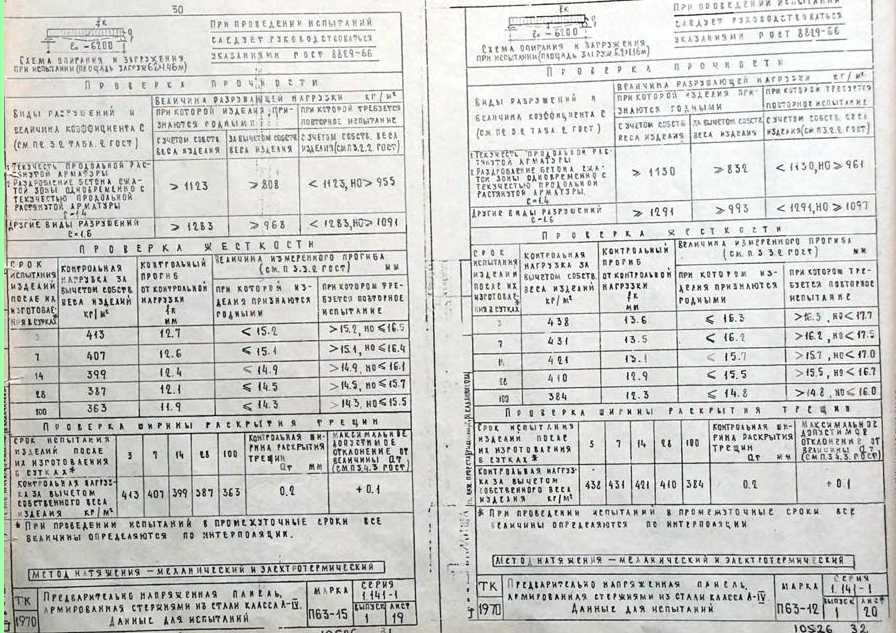 30
fк
ℓо = 6200
Схема опирания и загружения
при испытании (площадь загруж 6.2×1.46м)
При проведении испытаний
следует руководствоваться
указаниями ГОСТ 8829-66
Проверка прочности
Виды разрушений и
величина коэффициента С
(см. п. 3.2 табл. 2 ГОСТ)
Величина разрушающей нагрузки кг/м²
при которой изделия при-
знаются годными
при которой требуется
повторное испытание
с учетом собств.
веса изделия
за вычетом собств.
веса изделия
с учетом собств. веса
изделия (см п.3.2. ГОСТ)
1 Текучесть продольной рас-
тянутой арматуры
2 Раздробление бетона сжа-
той зоны одновременно с
текучестью продольной
растянутой арматуры
С=1.4
≥ 1123
≥ 808
< 1123, но ≥ 955
Другие виды разрушений
С=1.6
≥ 1283
≥ 968
< 1283, но ≥ 1091
Проверка жесткости
Срок
испытания
изделий
после их
изготовле-
ния в сутках*
Контрольная
нагрузка за
вычетом собств.
веса изделий
кг/м²
Контрольный
прогиб
от контрольной
нагрузки
fк
мм
Величина измеренного прогиба
(см. п. 3.3.2 ГОСТ) мм
при котором из-
делия признаются
годными
при котором тре-
буется повторное
испытание
413 12.7 ≤ 15.2 >15.2, но ≤ 16.5
7 407 12.6 ≤ 15.1 >15.1, но ≤ 16.4
14 399 12.4 ≤ 14.9 >14.9, но ≤ 16.1
28 387 12.1 ≤ 14.5 >14.5, но ≤ 15.7
100 363 11.9 ≤ 14.3 >14.3, но ≤ 15.5
Проверка ширины раскрытия трещин
Срок испытания
изделий после
их изготовления
в сутках*
3 7 14 28 100
Контрольная ши-
рина раскрытия
трещин
ат мм
Максимальное
допустимое
отклонение от
величины ат
(см. п. 3.4.3 ГОСТ)
Контрольная нагруз-
ка за вычетом
собственного веса
изделия кг/м²
413 407 399 387 363
0.2
+ 0.1
* При проведении испытаний в промежуточные сроки все
величины определяются по интерполяции.
Метод натяжения – механический и электротермический
ТК
1970
Предварительно напряженная панель,
армированная стержнями из стали класса А-IV.
Данные для испытаний
Марка
П63-15
Серия
1.141-1
Выпуск
1
Лист
19
10526 31
fк
ℓо = 6200
Схема опирания и загружения
при испытании (площадь загруж 6.2×1.16м)
При проведении испытаний
следует руководствоваться
указаниями ГОСТ 8829-66
Проверка прочности
Виды разрушений и
величина коэффициента С
(см. п. 3.2 табл. 2 ГОСТ)
Величина разрушающей нагрузки кг/м²
при которой изделия при-
знаются годными
при которой требуется
повторное испытание
с учетом собств.
веса изделия
за вычетом собств.
веса изделия
с учетом собств. веса
изделия (см п.3.2. ГОСТ)
1 Текучесть продольной рас-
тянутой арматуры
2 Раздробление бетона сжа-
той зоны одновременно с
текучестью продольной
растянутой арматуры.
С=1.4
≥ 1130
≥ 832
< 1130, но ≥ 961
Другие виды разрушений
С=1.6
≥ 1291
≥ 993
< 1291, но ≥ 1097
Проверка жесткости
Срок
испытания
изделий
после их
изготовле-
ния в сутках*
Контрольная
нагрузка за
вычетом собств.
веса изделий
кг/м²
Контрольный
прогиб
от контрольной
нагрузки
fк
мм
Величина измеренного прогиба
(см. п. 3.3.2 ГОСТ) мм
при котором из-
делия признаются
годными
при котором тре-
буется повторное
испытание
3 438 13.6 ≤ 16.3 >16.3, но ≤ 17.7
7 431 13.5 ≤ 16.2 >16.2, но ≤ 17.5
14 421 13.1 ≤ 15.7 >15.7, но ≤ 17.0
28 410 12.9 ≤ 15.5 >15.5, но ≤ 16.7
100 384 12.3 ≤ 14.8 >14.8, но ≤ 16.0
Проверка ширины раскрытия трещин
Срок испытания
изделий после
их изготовления
в сутках*
3 7 14 28 100
Контрольная ши-
рина раскрытия
трещин
ат мм
Максимальное
допустимое
отклонение от
величины ат
(см. п. 3.4.3 ГОСТ)
Контрольная нагруз-
ка за вычетом
собственного веса
изделия кг/м²
438 431 421 410 384
0.2
+ 0.1
* При проведении испытаний в промежуточные сроки все
величины определяются по интерполяции
Метод натяжения – механический и электротермический
ТК
1970
Предварительно напряженная панель,
армированная стержнями из стали класса А-IV.
Данные для испытаний
Марка
П63-12
Серия
1.141-1
Выпуск
1
Лист
20
10526 32